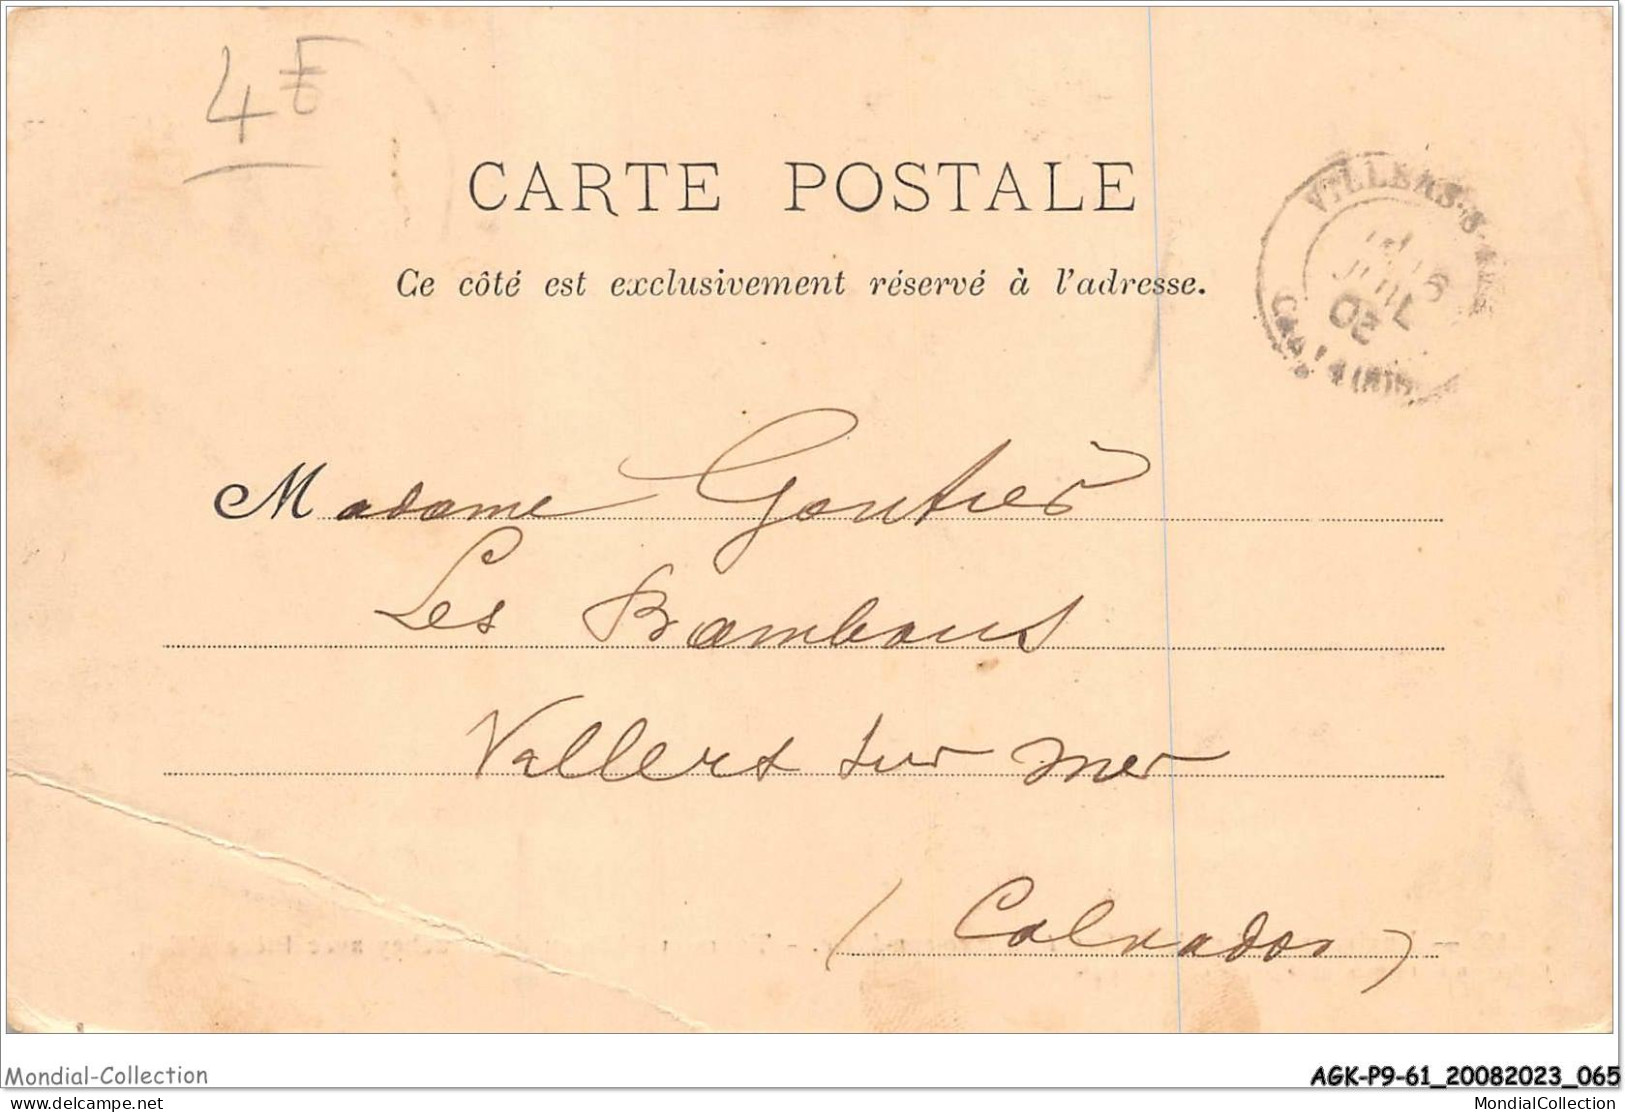 4€
CARTE POSTALE
Ce côté est exclusivement réservé à l'adresse.
VILLERS-S-MER
JUIL
02
CALVADOS
Madame Gautier
Les Bambous
Villers sur mer
(Calvados)
Mondial-Collection
AGK-P9-61_20082023_065
delcampe.net
MondialCollection